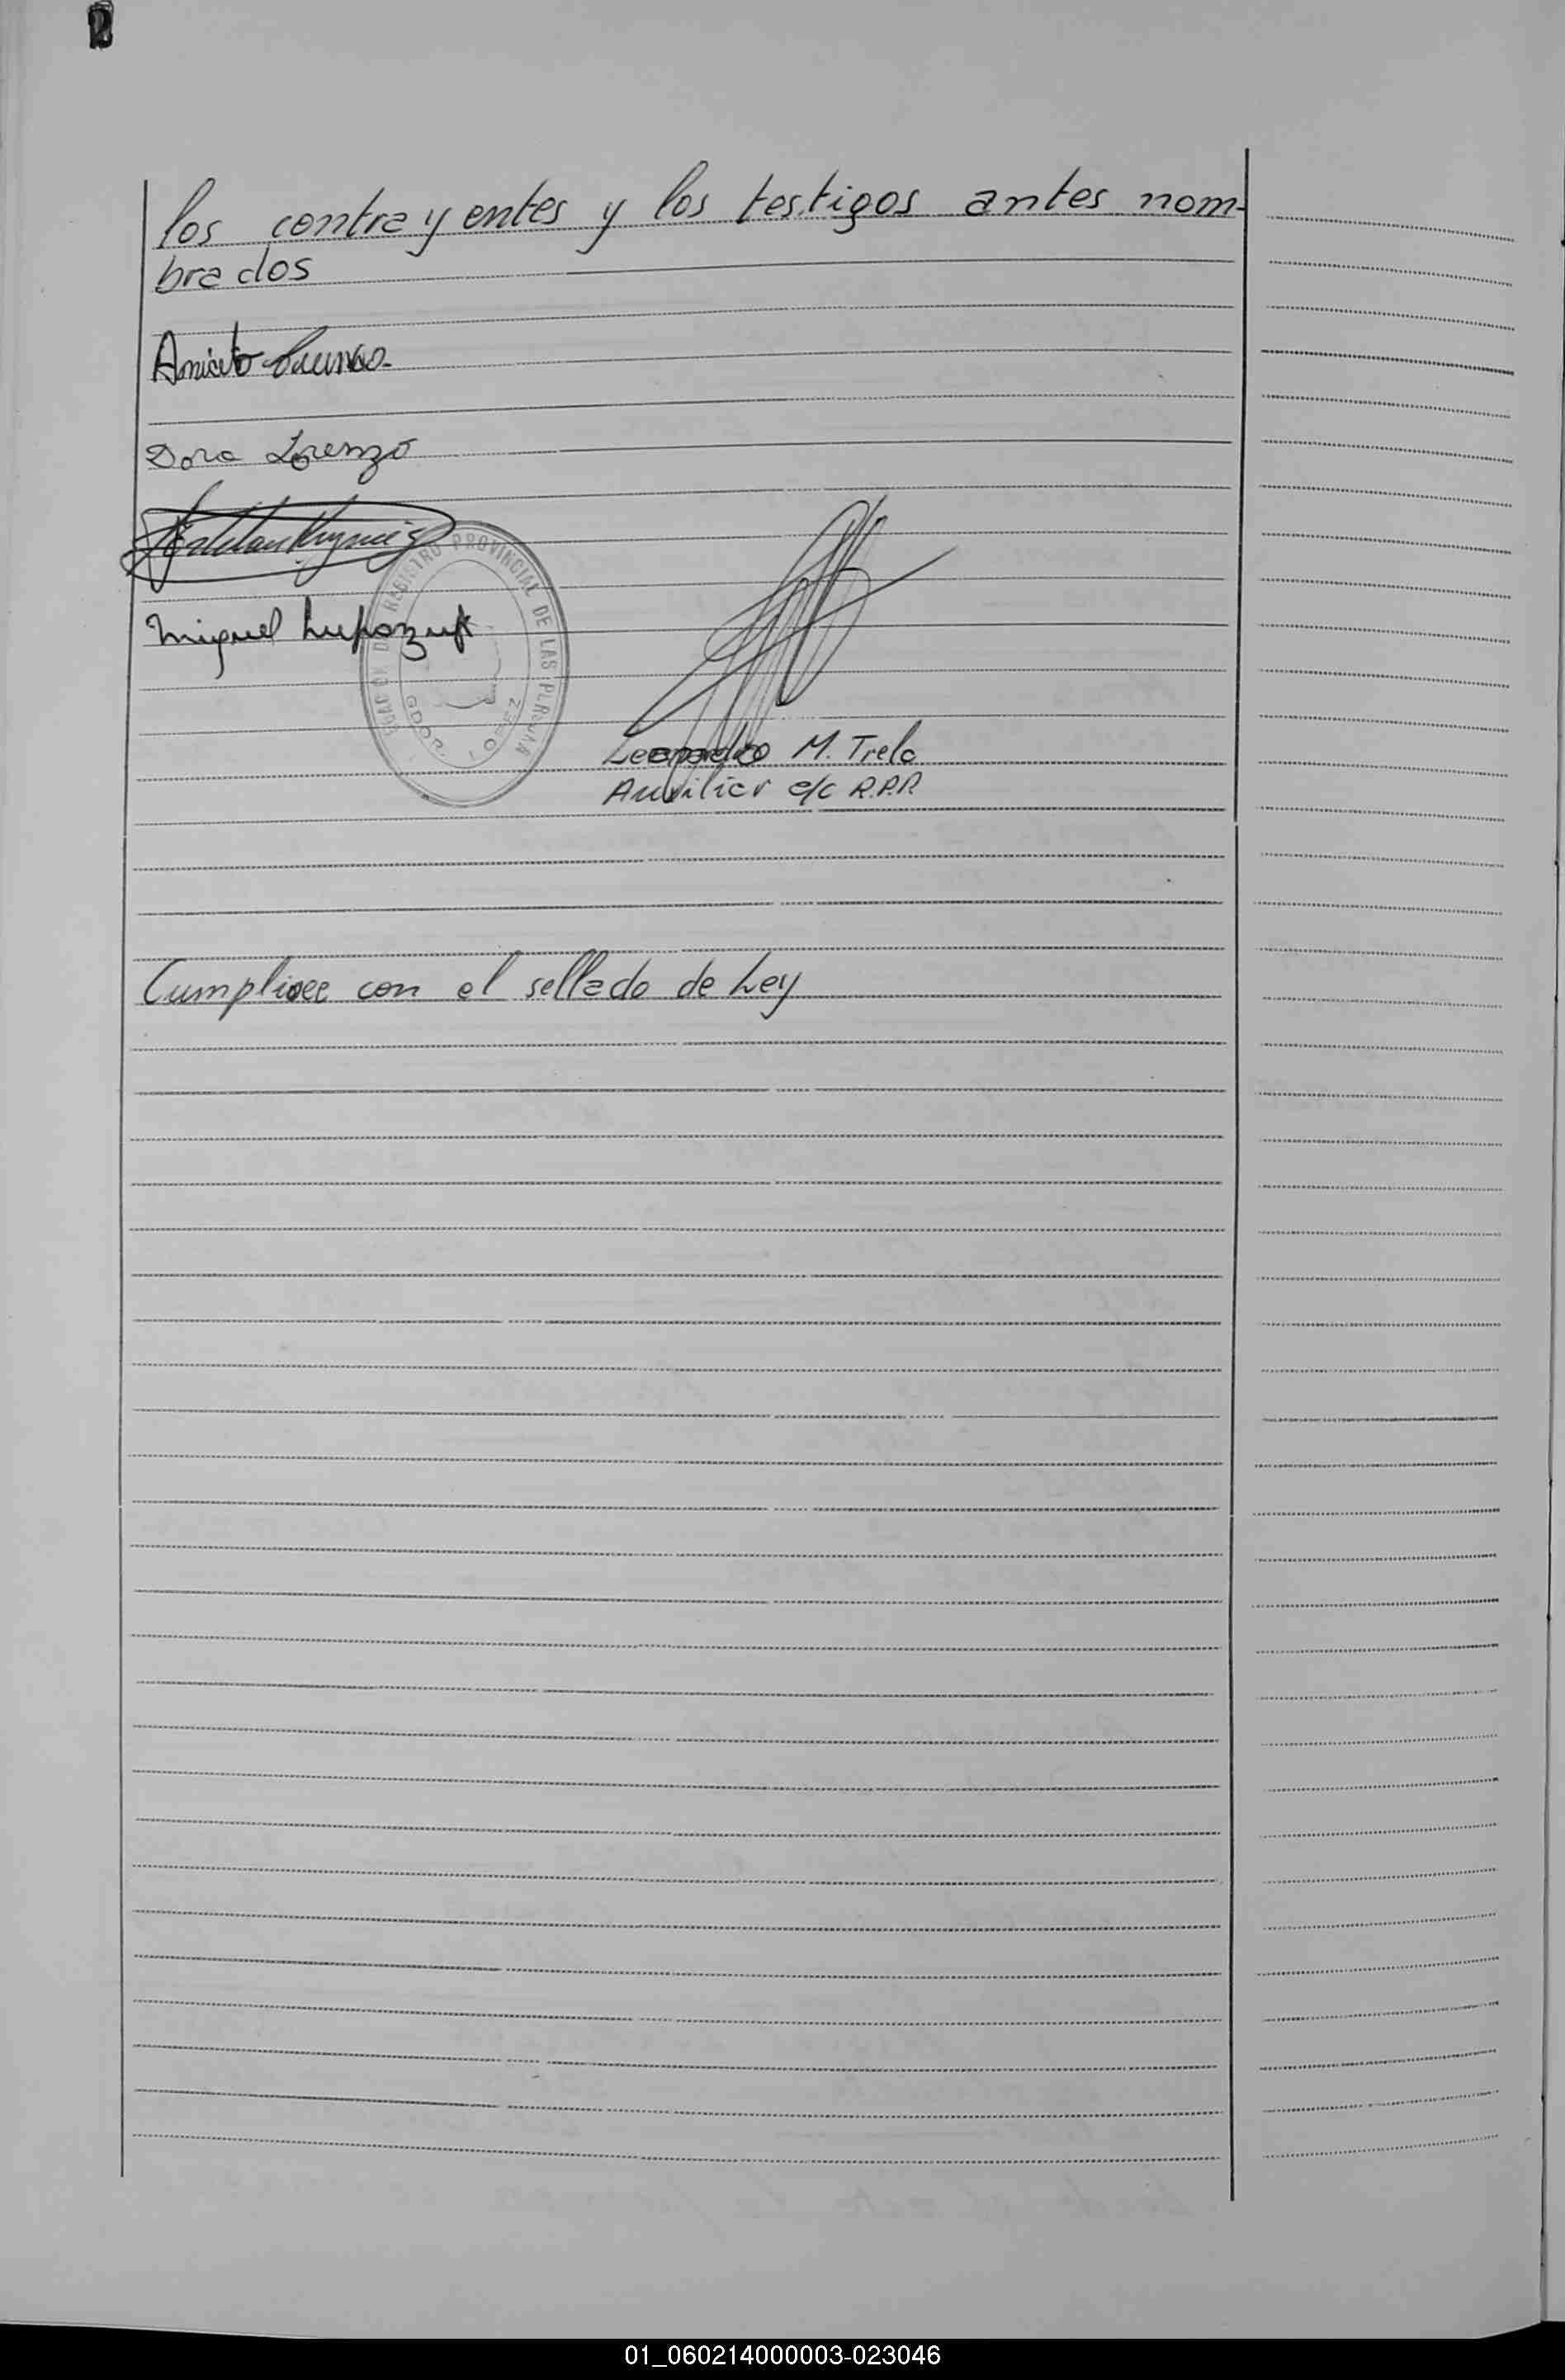 los contrayentes y los testigos antes nom-
brados
Aniceto
Dora Lorenzo
Esteban
Miguel Lupozuk
REGISTRO PROVINCIAL DE LAS PERSONAS
GDOR. LOPEZ
Leopoldo M. Trela
Auxiliar e/c R.P.P.
Cumplióse con el sellado de Ley
01_060214000003-023046